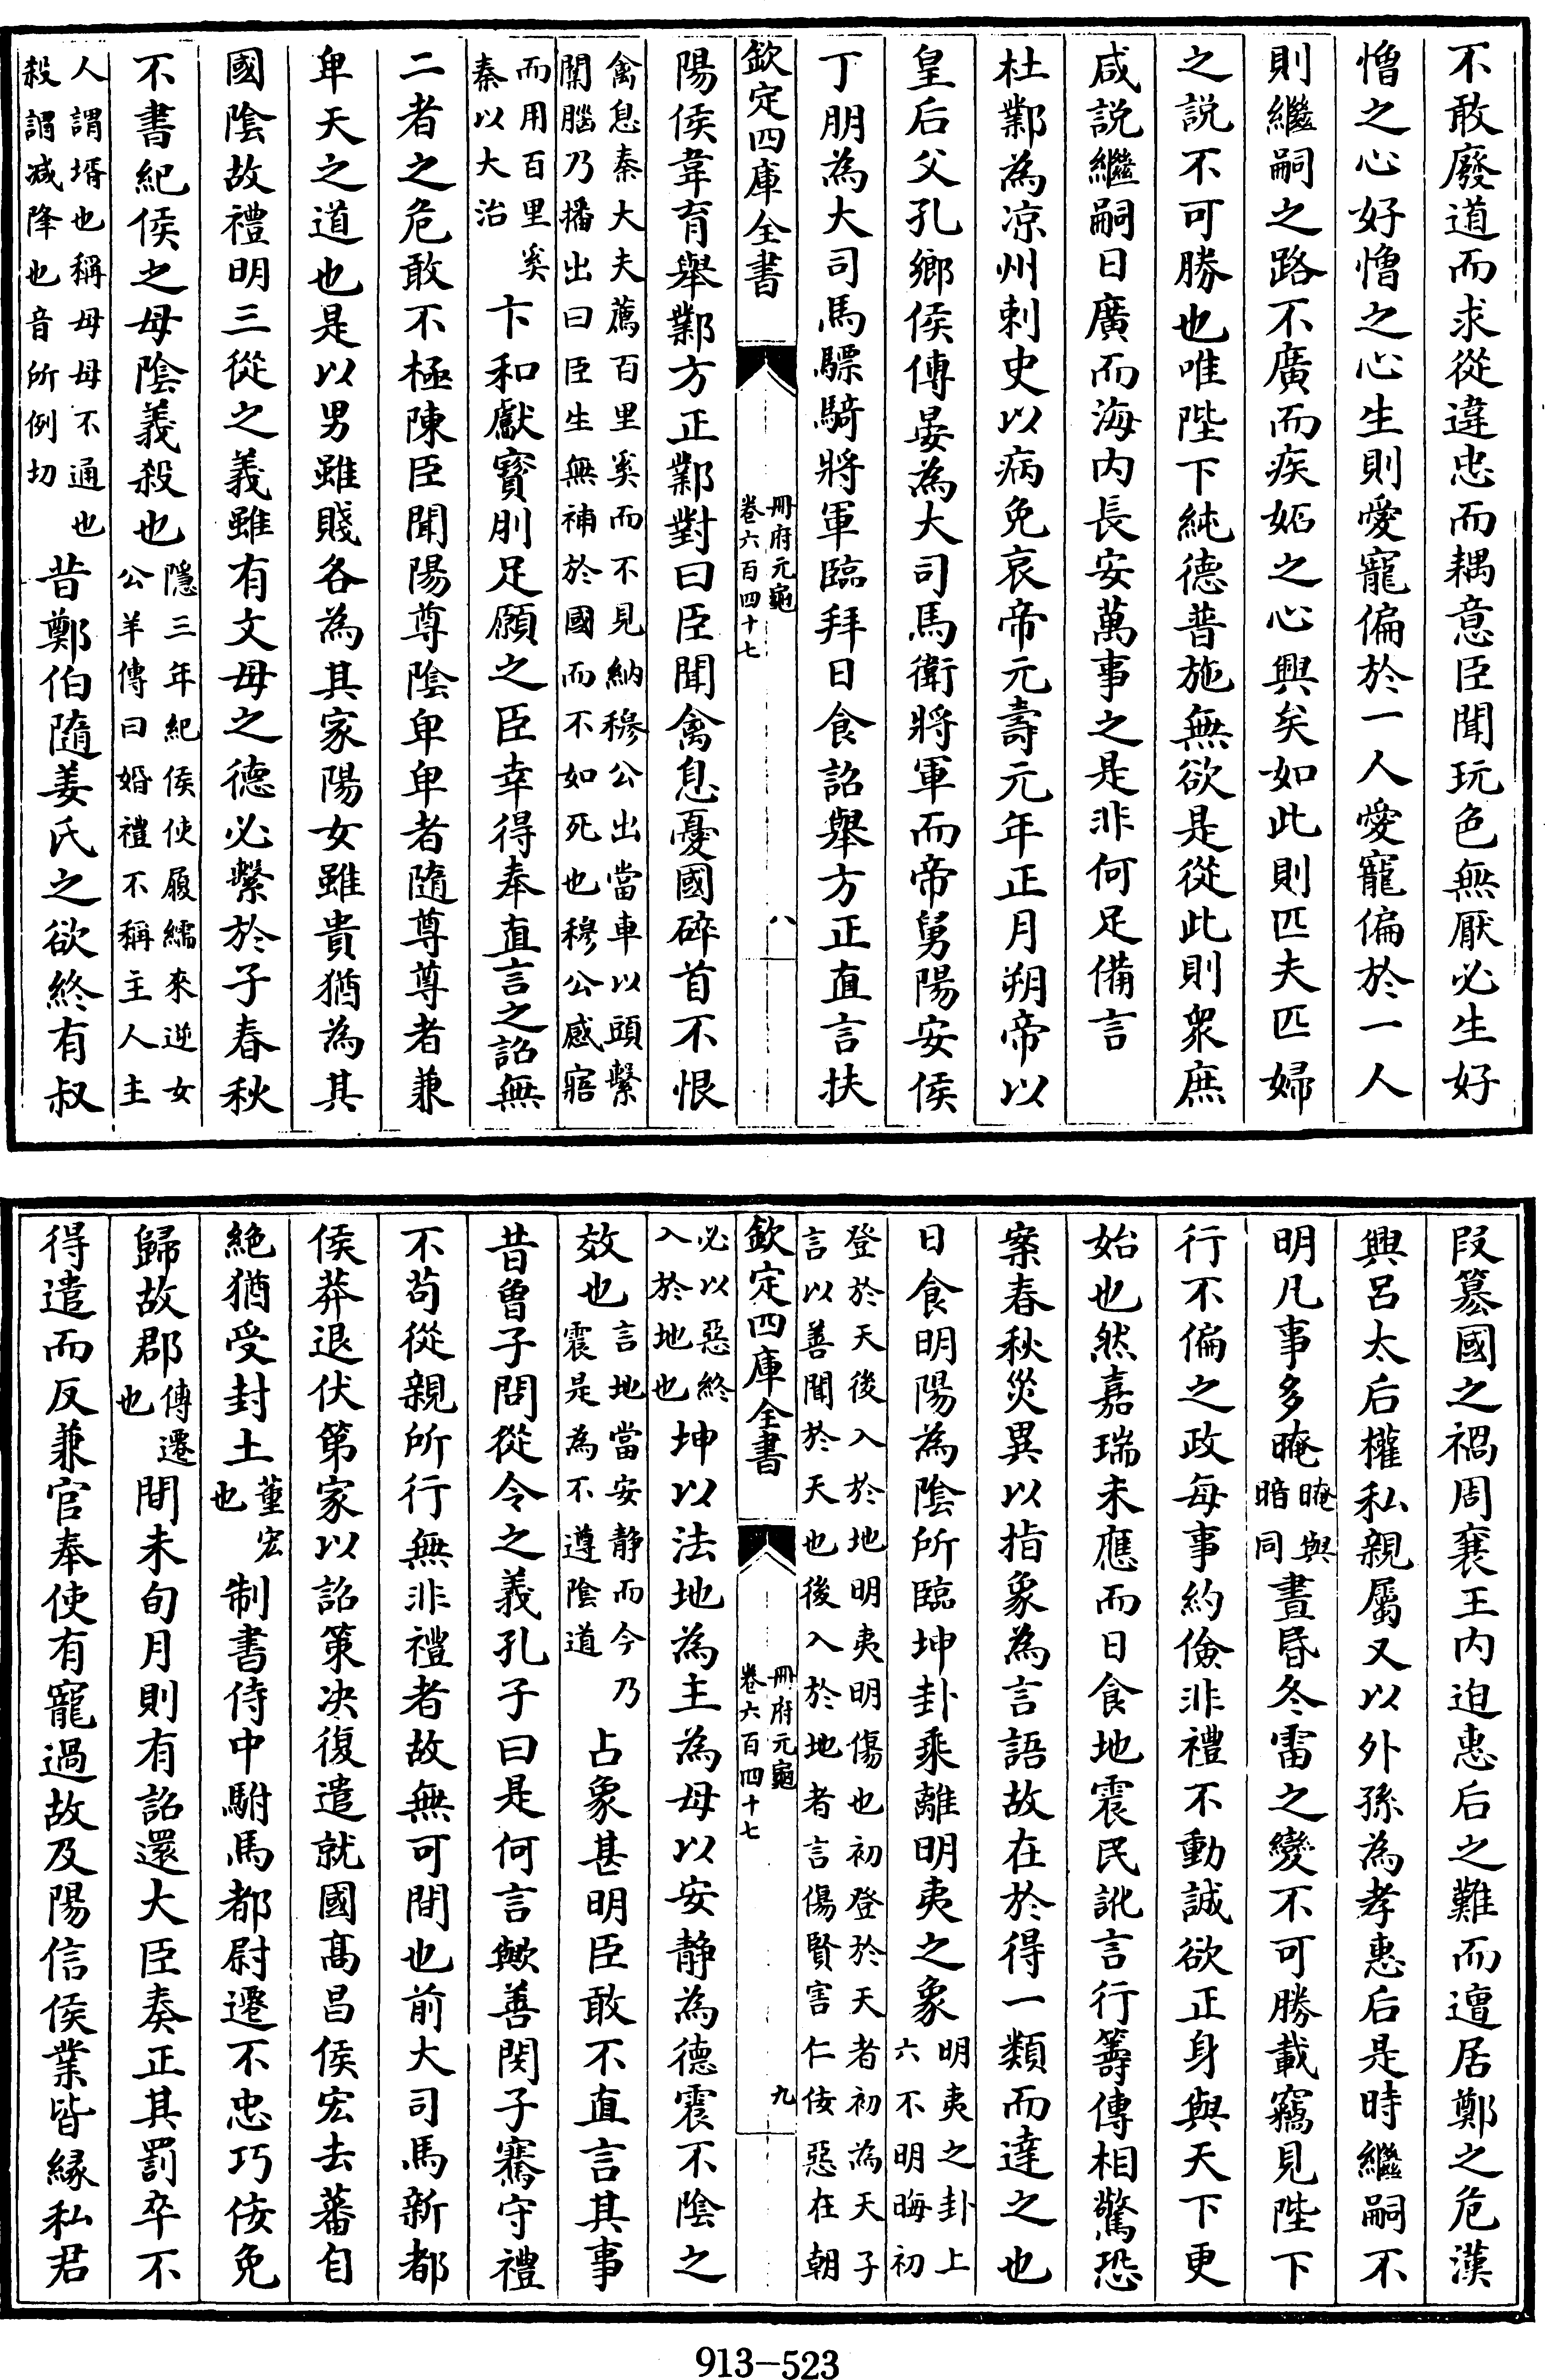 不敢廢道而求從違忠而耦意臣聞玩色無厭必生好
憎之心好憎之心生則愛寵偏於一人愛寵偏於一人
則繼嗣之路不廣而疾妬之心興矣如此則匹夫匹婦
之説不可勝也唯陛下純德普施無欲是從此則衆庶
咸説繼嗣日廣而海内長安萬事之是非何足備言
杜鄴為凉州刺史以病免哀帝元壽元年正月朔帝以
皇后父孔鄉侯傅晏為大司馬衛將軍而帝舅陽安侯
丁朋為大司馬驃騎將軍臨拜日食詔舉方正直言扶
欽定四庫全書
冊府元龜
卷六百四十七
八
陽侯韋育舉鄴方正鄴對曰臣聞禽息憂國碎首不恨
禽息秦大夫薦百里奚而不見納穆公出當車以頭擊
闑腦乃播出曰臣生無補於國而不如死也穆公感寤
而用百里奚
秦以大治
卞和獻寶刖足願之臣幸得奉直言之詔無
二者之危敢不極陳臣聞陽尊陰卑卑者隨尊尊者兼
卑天之道也是以男雖賤各為其家陽女雖貴猶為其
國陰故禮明三從之義雖有文母之德必繫於子春秋
不書紀侯之母陰義殺也
隱三年紀侯使履繻來逆女
公羊傳曰婚禮不稱主人主
人謂壻也稱母母不通也
殺謂減降也音所例切
昔鄭伯隨姜氏之欲終有叔
段簒國之禍周襄王内迫惠后之難而遭居鄭之危漢
興呂太后權私親屬又以外孫為孝惠后是時繼嗣不
明凡事多晻
晻與
暗同
晝昏冬雷之變不可勝載竊見陛下
行不偏之政每事約儉非禮不動誠欲正身與天下更
始也然嘉瑞未應而日食地震民訛言行籌傳相驚恐
案春秋災異以指象為言語故在於得一類而達之也
日食明陽為陰所臨坤卦乘離明夷之象
明夷之卦上
六不明晦初
登於天後入於地明夷明傷也初登於天者初為天子
言以善聞於天也後入於地者言傷賢害仁佞惡在朝
欽定四庫全書
冊府元龜
卷六百四十七
九
必以惡終
入於地也
坤以法地為主為母以安静為德震不陰之
效也
言地當安静而今乃
震是為不遵陰道
占象甚明臣敢不直言其事
昔曾子問從令之義孔子曰是何言歟善閔子騫守禮
不苟從親所行無非禮者故無可間也前大司馬新都
侯莽退伏第家以詔策决復遣就國高昌侯宏去蕃自
絶猶受封土
董宏
也
制書侍中駙馬都尉遷不忠巧佞免
歸故郡
傅遷
也
間未旬月則有詔還大臣奏正其罰卒不
得遣而反兼官奉使有寵過故及陽信侯業皆緣私君
913—523